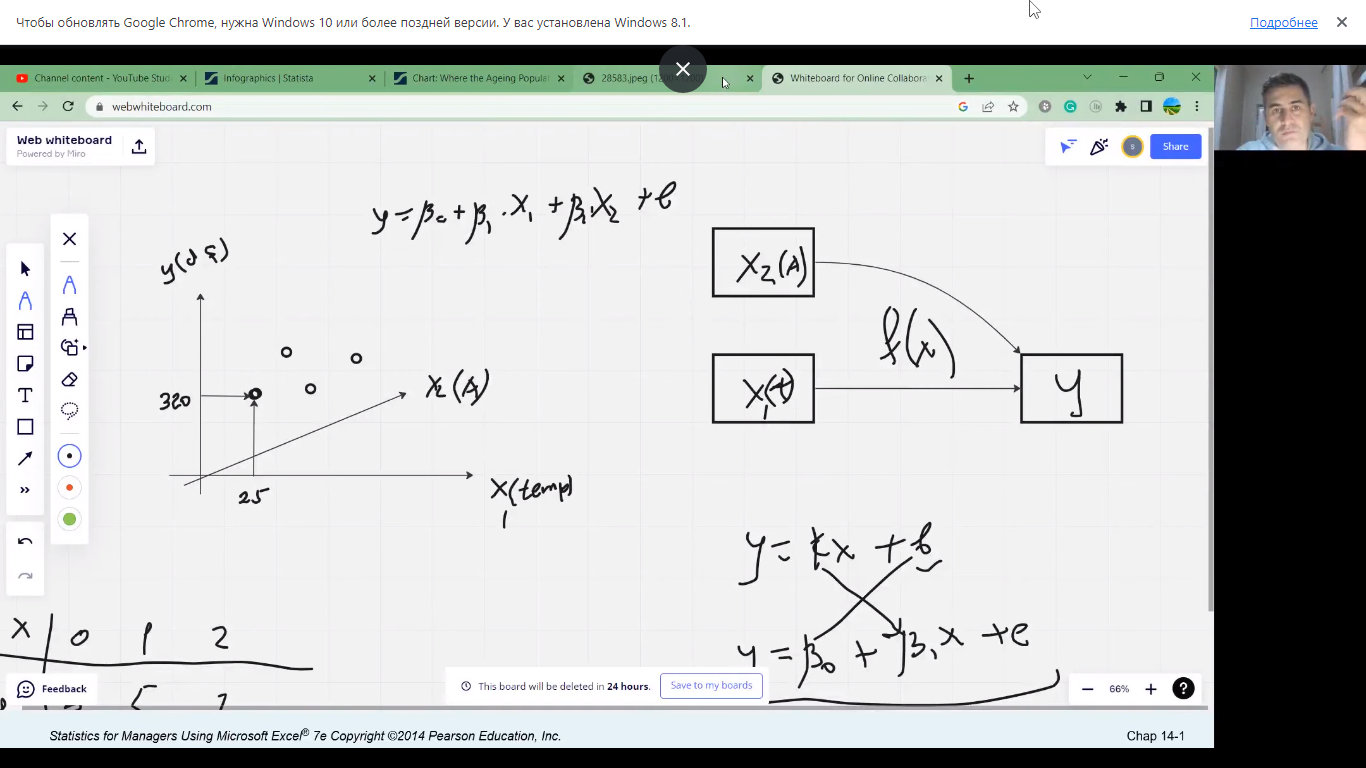 Чтобы обновлять Google Chrome, нужна Windows 10 или более поздней версии. У вас установлена Windows 8.1.
Подробнее
Channel content - YouTube Stud
Infographics | Statista
Chart: Where the Ageing Populat
28583.jpeg (12
Whiteboard for Online Collabora
webwhiteboard.com
Web whiteboard
Powered by Miro
s
Share
y = β0 + β1 · X1 + β1 X2 + e
X2 (A)
f(x)
320
X2 (A)
X1(t)
y
25
X1 (temp)
y = kx + b
X 0 1 2
y = β0 + β1 x + e
Feedback
This board will be deleted in 24 hours.
Save to my boards
66%
?
Statistics for Managers Using Microsoft Excel® 7e Copyright ©2014 Pearson Education, Inc.
Chap 14-1